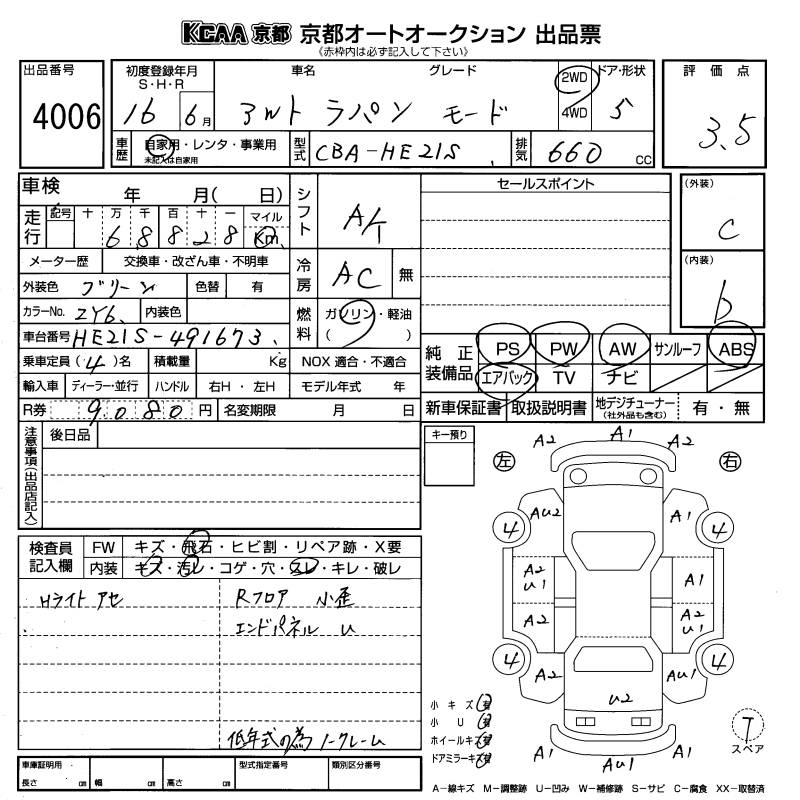 KCAA 京都 京都オートオークション 出品票
《赤枠内は必ず記入して下さい》
出品番号 4006
初度登録年月 S・H・R 16 6月
車名 グレード
スズキ ラパン モード
2WD 4WD
ドア・形状 5
評価点 3.5
車歴 自家用・レンタ・事業用 未記入は自家用
型式 CBA-HE21S
排気 660 CC
車検 年 月( 日)
シフト A/T
セールスポイント
(外装) C
(内装) b
走行 記号 十 万 千 百 十 一 マイル
6 8 8 2 8 Km
メーター歴 交換車・改ざん車・不明車
冷房 AC 無
外装色 グリーン 色替 有
カラーNo. ZY6 内装色
燃料 ガソリン・軽油 ( )
車台番号 HE21S-491673
純正装備品 PS PW AW サンルーフ ABS
エアバック TV ナビ
乗車定員(4)名 積載量 Kg NOX 適合・不適合
輸入車 ディーラー・並行 ハンドル 右H・左H モデル年式 年
R券 9080円 名変期限 月 日
新車保証書 取扱説明書 地デジチューナー (社外品も含む) 有・無
注意事項(出品店記入) 後日品
キー預り
検査員記入欄 FW キズ・飛石・ヒビ割・リペア跡・X要
内装 キズ・汚レ・コゲ・穴・スレ・キレ・破レ
Hライト アセ
Rフロア 小歪
エンドパネル U
低年式の為 ノークレーム
A2 A1 A2
左 右
4 AU2 A1 4
A2 U1 A1
A2 A2 U1
4 A2 AU1 4
U2
A1 AU1 A1
小キズ 有
小U 有
ホイールキズ 有
ドアミラーキズ 有
T スペア
車庫証明用 長さ cm 幅 cm 高さ cm 型式指定番号 類別区分番号
A−線キズ M−調整跡 U−凹み W−補修跡 S−サビ C−腐食 XX−取替済